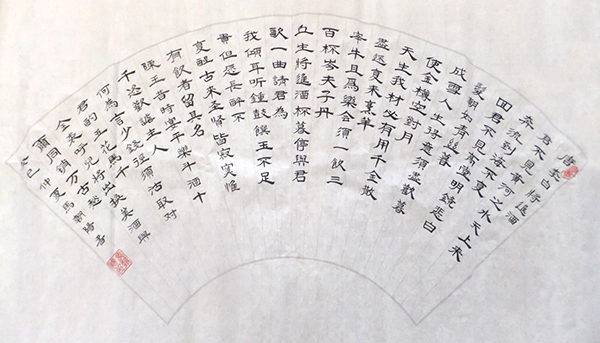 唐李白將進酒
君不見黃河之水天上來
奔流到海不復
回君不見高堂明鏡悲白
髮朝如青絲暮
成雪人生得意須盡歡暮
使金樽空對月
天生我材必有用千金散
盡還復來烹羊
宰牛且為樂會須一飲三
百杯岑夫子丹
丘生將進酒杯莫停與君
歌一曲請君為
我傾耳聽鐘鼓饌玉不足
貴但願長醉不
復醒古來聖賢皆寂寞惟
有飲者留其名
陳王昔時宴平樂斗酒十
千恣歡謔主人
何為言少錢徑須沽取對
君酌五花馬千
金裘呼兒將出換美酒與
爾同銷萬古愁
癸巳仲夏馬朝陽書